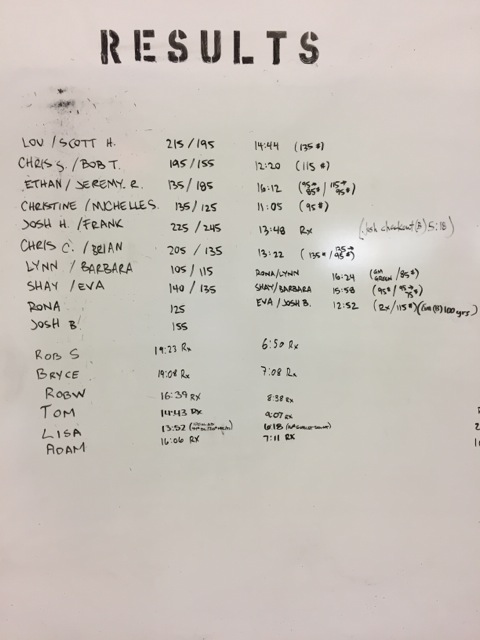 RESULTS
LOU / SCOTT H. 215 / 195 14:44 (135 #)
CHRIS S. / BOB T. 195 / 155 12:20 (115 #)
ETHAN / JEREMY. R. 135 / 185 16:12 (95→85# / 115→95#)
CHRISTINE / MICHELLE S. 135 / 125 11:05 (95#)
JOSH H. / FRANK 225 / 245 13:48 Rx (Josh checkout (B) 5:18)
CHRIS C. / BRIAN 205 / 135 13:22 (135# / 135→95#)
LYNN / BARBARA 105 / 115 RONA/LYNN 16:24 (GM GREEN / 85#)
SHAY / EVA 140 / 135 SHAY/BARBARA 15:58 (95# / 95→75#)
RONA 125 EVA / JOSH B. 12:52 (Rx / 115#) 100 yrs)
JOSH B. 155
ROB S 19:23 Rx 6:50 Rx
BRYCE 19:08 Rx 7:08 Rx
ROB W 16:39 Rx 8:38 Rx
TOM 14:43 Rx 9:07 Rx
LISA 13:52 6:18
ADAM 16:06 Rx 7:11 Rx